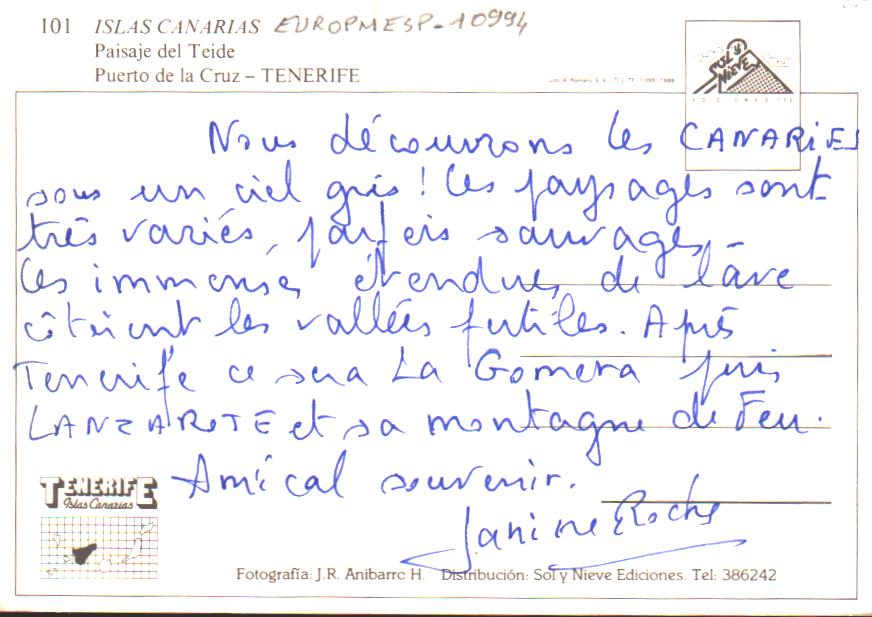 101 ISLAS CANARIAS EUROPMESP-10994
Paisaje del Teide
Puerto de la Cruz – TENERIFE
SOL Y NIEVE
EDICIONES TFE
Nous découvrons les CANARIES
sous un ciel gris ! Les paysages sont
très variés, parfois sauvages –
Les immenses étendues de lave
côtoient les vallées fertiles. Après
Tenerife ce sera La Gomera puis
LANZAROTE et sa montagne de Feu.
Amical souvenir.
Janine Roche
TENERIFE
Islas Canarias
Fotografía: J.R. Anibarro H. Distribución: Sol y Nieve Ediciones. Tel: 386242